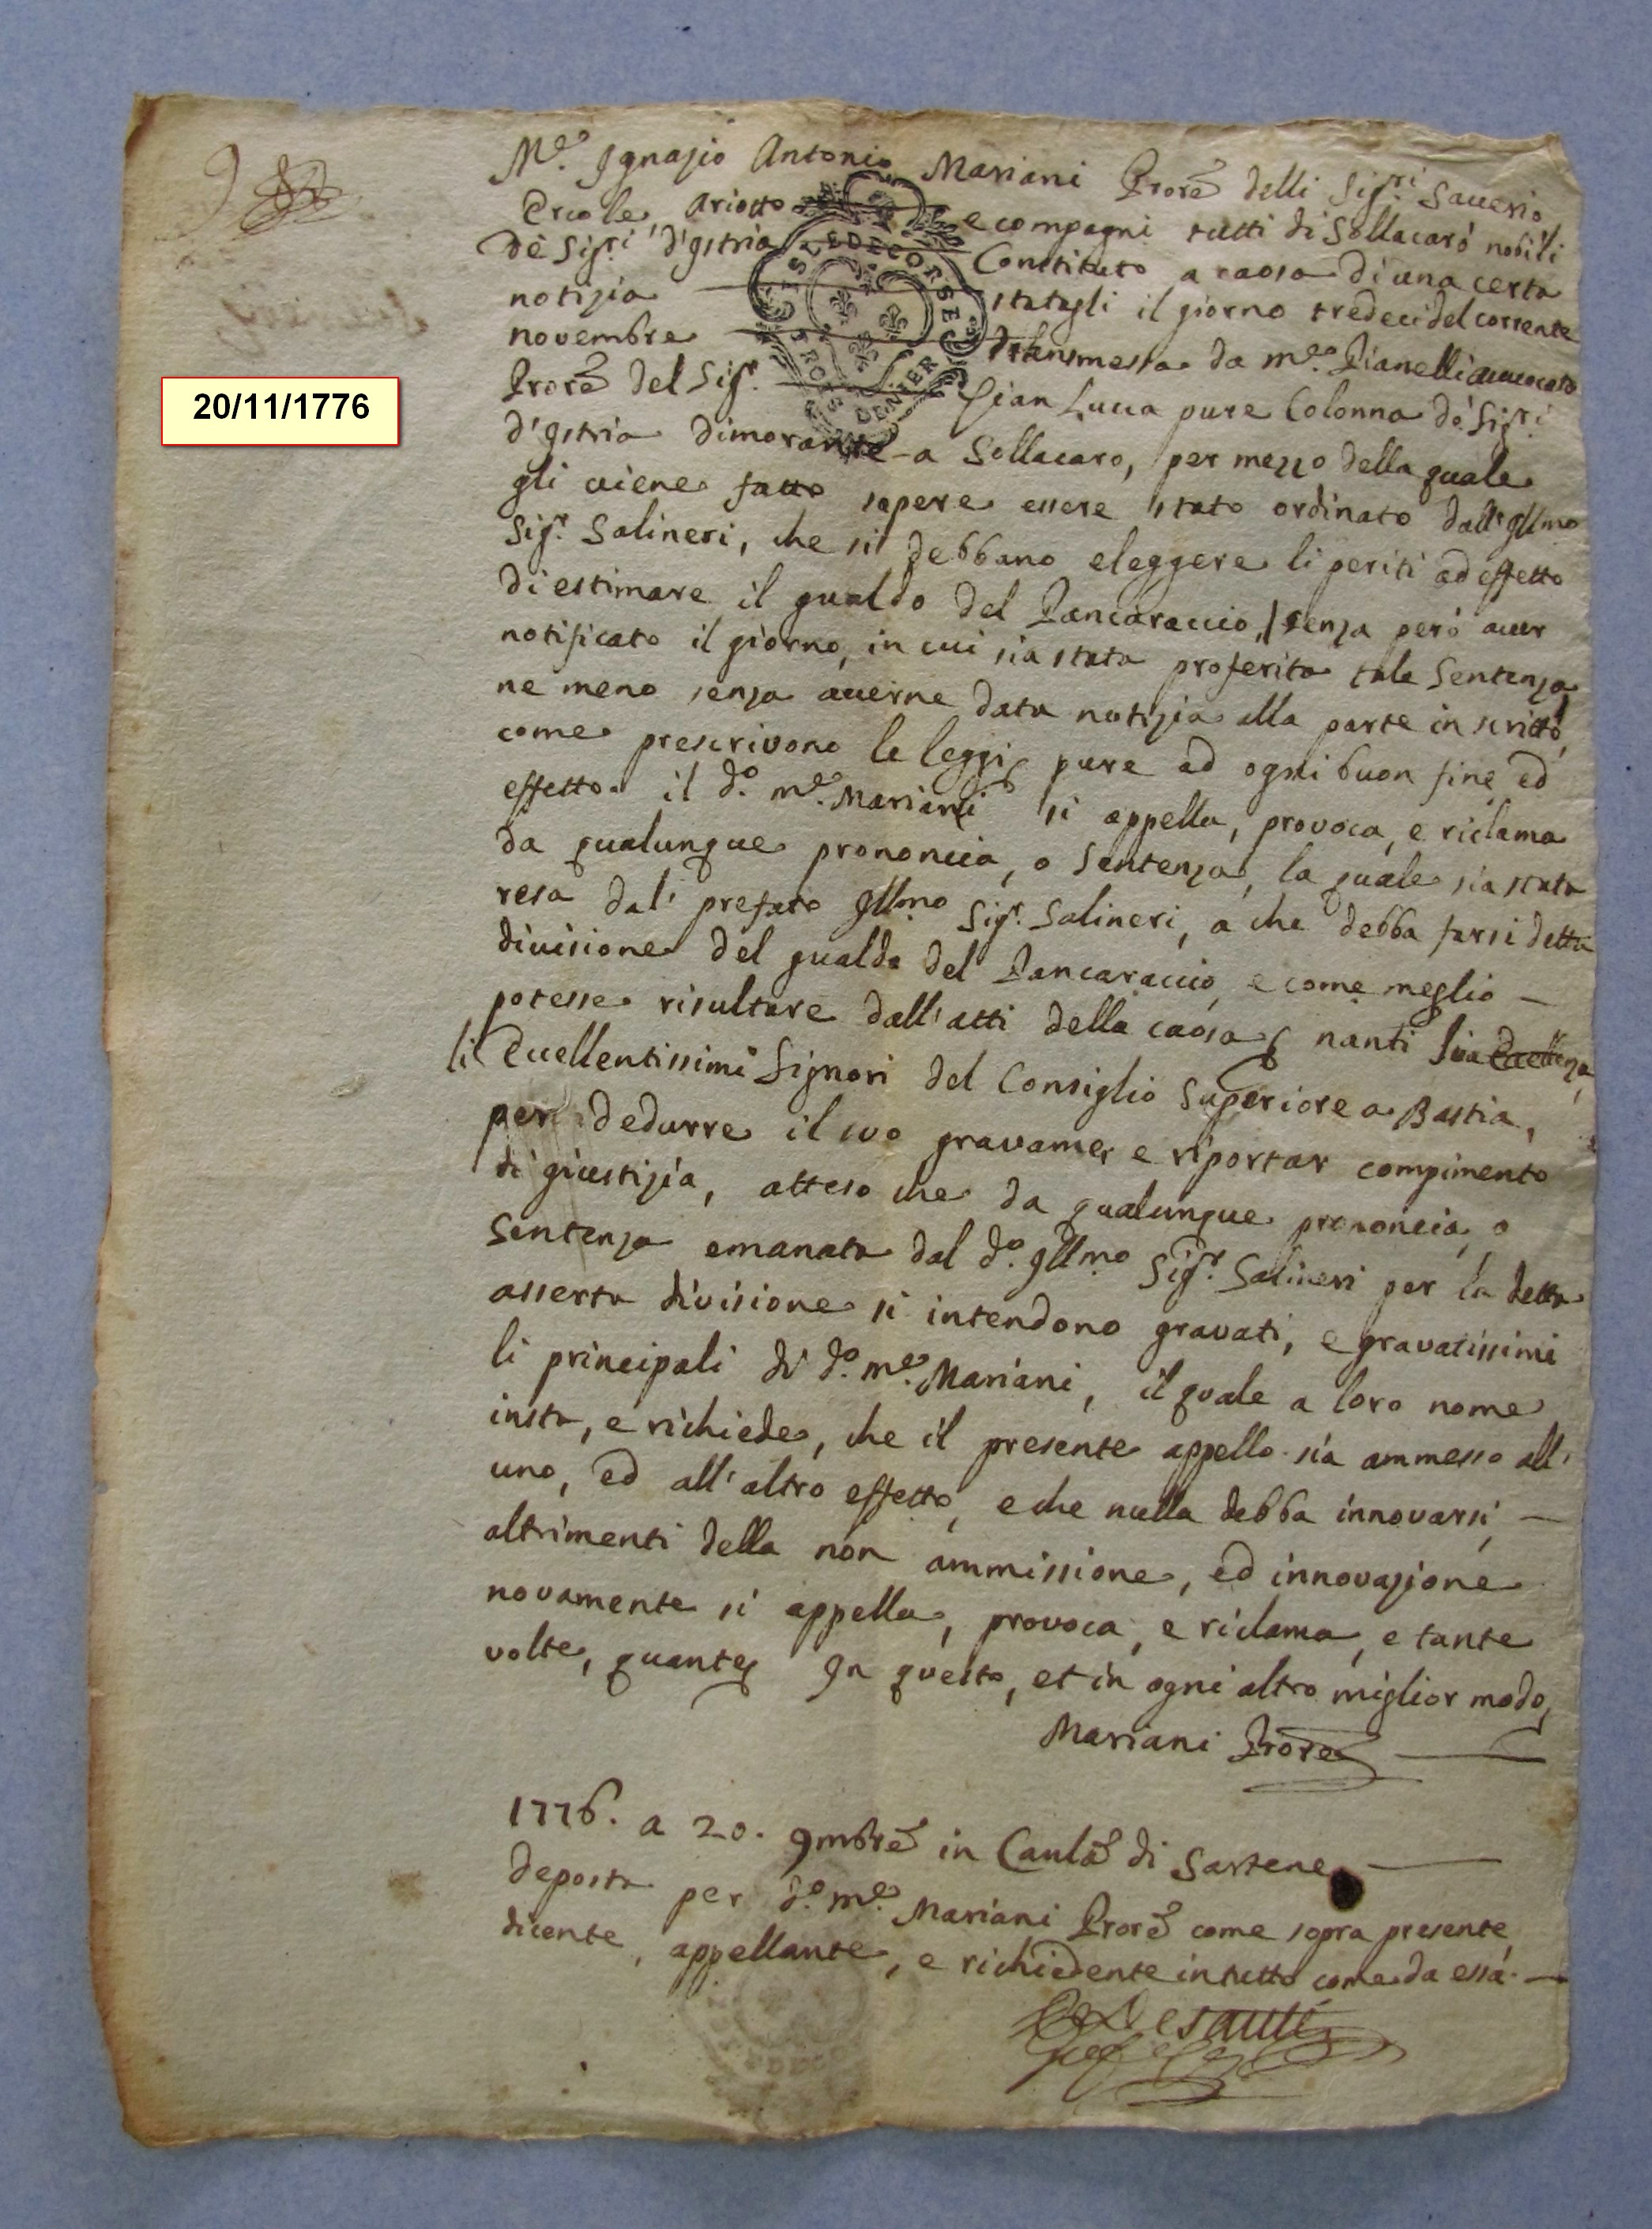 20/11/1776
M.e Ignazio Antonio Mariani Prore delli Sig.ri Saverio
Ercole, Ariotto e compagni tutti di Sollacarò nobili
de Sig.ri d'Istria Constituto a caosa di una certa
notizia statagli il giorno tredeci del corrente
novembre transmessa da m.o Pianelli avvocato
Prore del Sig.r Gian Luca pure Colonna de Sig.ri
d'Istria dimorante a Sollacaro, per mezzo della quale
gli viene fatto sapere essere stato ordinato dall'Illmo
Sig.r Salineri, che si debbano eleggere li periti ad effetto
di estimare il gualdo del Pancaraccio, senza però aver
notificato il giorno, in cui sia stata proferita tale Sentenza
ne meno senza averne data notizia alla parte in scritto,
come prescrivono le leggi, pure ad ogni buon fine, ed
effetto il d.o m.e Mariani si appella, provoca, e riclama
da qualunque prononcia, o Sentenza, la quale sia stata
resa dal' prefato Illmo Sig.r Salineri, a che debba farsi detta
divisione del gualdo del Pancaraccio, e come meglio —
potesse risultare dall'atti della caosa, nanti Sua Eccellenza,
li Eccellentissimi Signori del Consiglio Superiore a Bastia,
per dedurre il suo gravame, e riportar compimento
di giustizia, atteso che da qualunque prononcia, o
Sentenza emanata dal d.o Illmo Sig.r Salineri per la detta
asserta divisione si intendono gravati, e gravatissimi
li principali di d.o m.e Mariani, il quale a loro nome
insta, e richiede, che il presente appello sia ammesso all'
uno, ed all'altro effetto, e che nulla debba innovarsi, —
altrimenti della non ammissione, ed innovazione
novamente si appella, provoca, e riclama, e tante
volte, quante, In questo, et in ogni altro miglior modo,
Mariani Prore
1776. a 20. 9mbre in Canla di Sartene —
deposta per d.o m.e Mariani Prore come sopra presente,
dicente, appellante, e richiedente in tutto come da essa. —
ISLE DE CORSE
TROIS DENIER